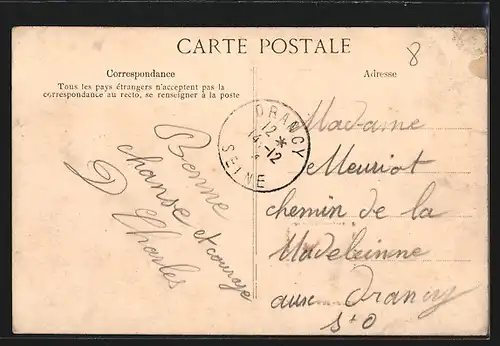 CARTE POSTALE
8
Correspondance
Tous les pays étrangers n'acceptent pas la
correspondance au recto, se renseigner à la poste
Adresse
DRANCY
12 *
14-12
SEINE
Bonne
chanse et courage
D Charles
Madame
Meuriot
chemin de la
Madeleinne
aux Drancy
S-O